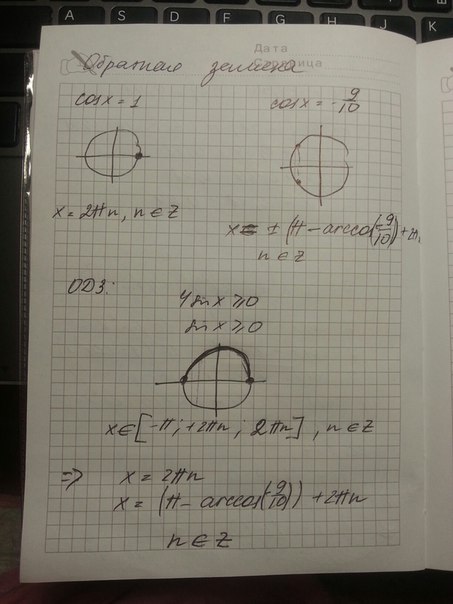 A S D F G H J K
Дата
Страница
Обратная замена
cosx = 1
cosx = -9/10
x = 2πn, n∈Z
x = ±(π - arccos(-9/10)) + 2π
n∈Z
ОДЗ:
4sinx ⩾ 0
sinx ⩾ 0
x∈[-π; +2πn ; 2πn], n∈Z
=> x = 2πn
x = (π - arccos(-9/10)) + 2πn
n∈Z